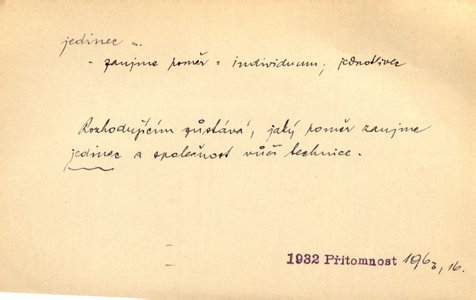 jedinec ...
- zaujme poměr = individuum; jednotlivec
Rozhodujícím zůstává, jaký poměr zaujme
jedinec a společnost vůči technice.
1932 Přítomnost 196